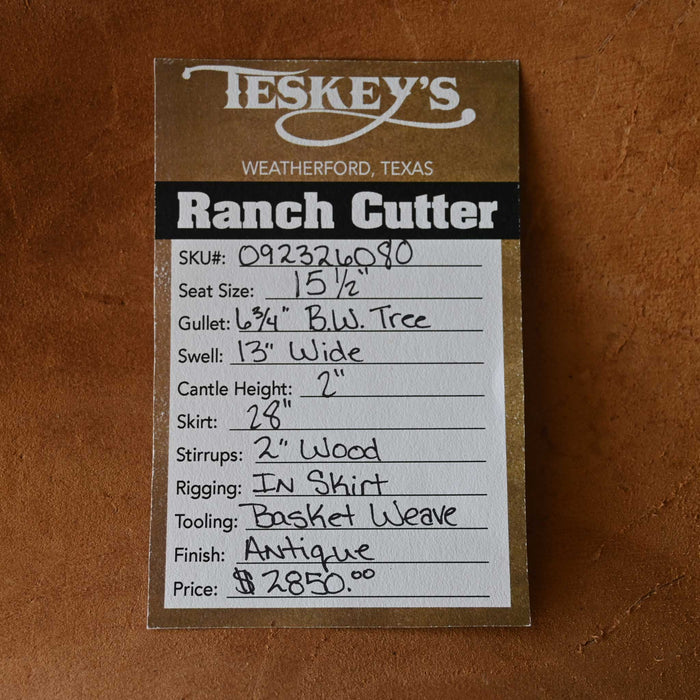 TESKEY'S
WEATHERFORD, TEXAS
Ranch Cutter
SKU#: 092326080
Seat Size: 15 1/2"
Gullet: 6 3/4" B.W. Tree
Swell: 13" Wide
Cantle Height: 2"
Skirt: 28"
Stirrups: 2" Wood
Rigging: IN Skirt
Tooling: Basket Weave
Finish: Antique
Price: $2850.00